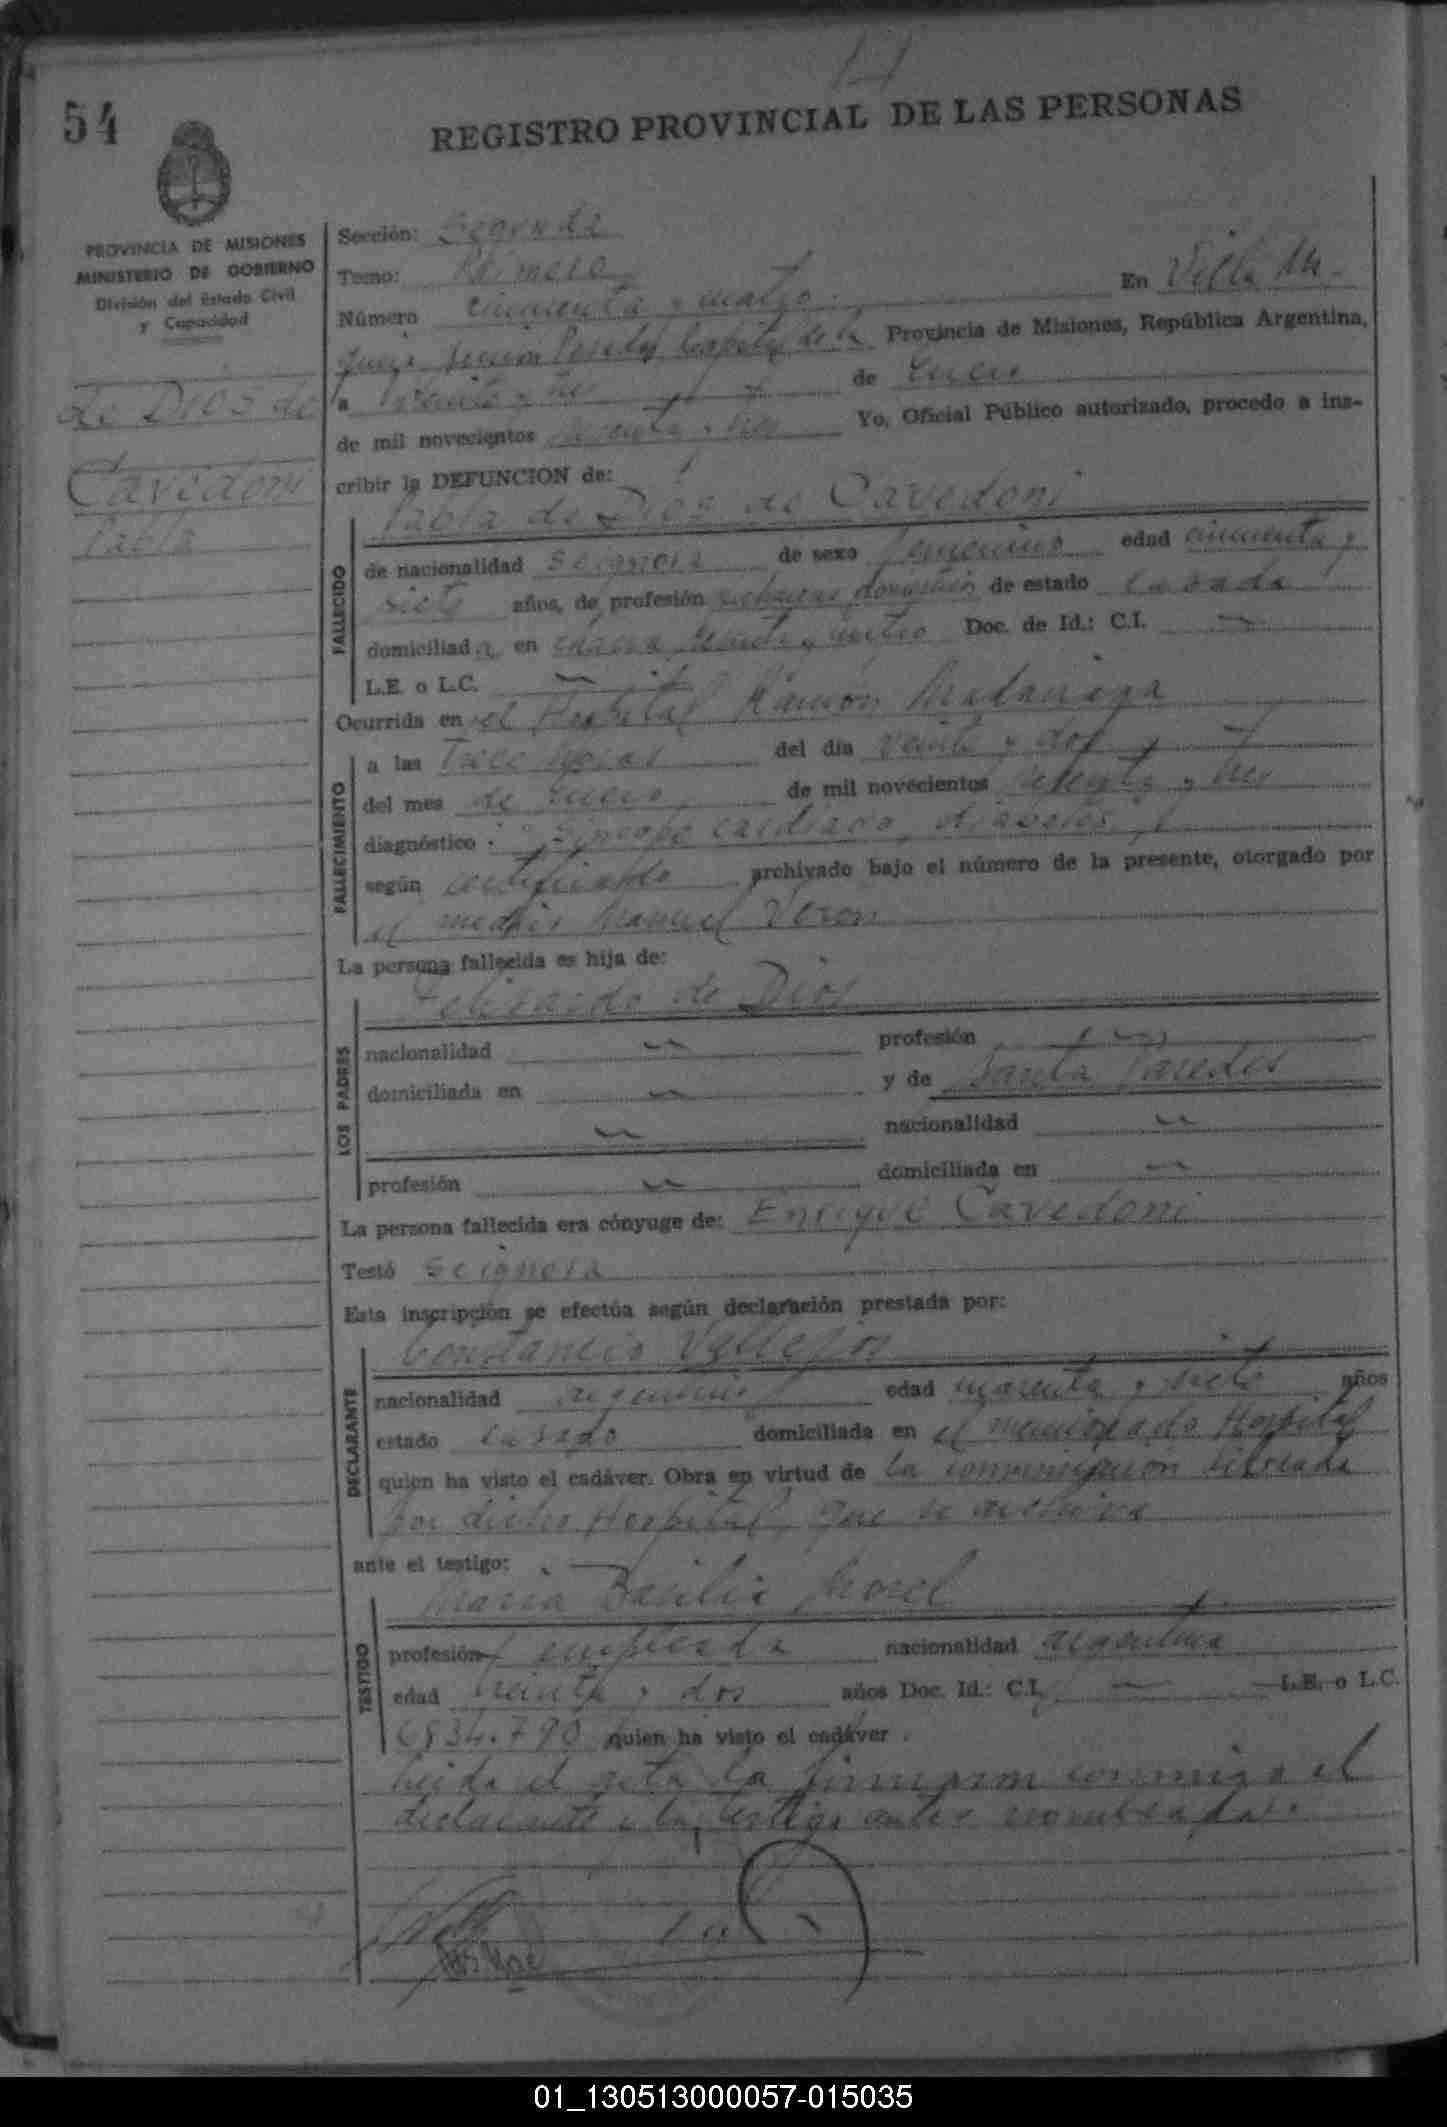 54
REGISTRO PROVINCIAL DE LAS PERSONAS
PROVINCIA DE MISIONES
MINISTERIO DE GOBIERNO
División del Estado Civil
y Capacidad
de Dios de
Cavedoni
Pabla
Sección: Segunda
Tomo: Primero
Número cincuenta y cuatro En Villa
Posadas Provincia de Misiones, República Argentina,
a veinte y tres de Enero
de mil novecientos setenta y tres Yo, Oficial Público autorizado, procedo a ins-
cribir la DEFUNCION de:
Pabla de Dios de Cavedoni
FALLECIDO
de nacionalidad se ignora de sexo femenino edad cincuenta y
siete años, de profesión quehaceres domésticos de estado casada
domiciliada en chacra y cuatro Doc. de Id.: C.I. —
L.E. o L.C. —
Ocurrida en el Hospital Ramón Madariaga
FALLECIMIENTO
a las Trece horas del día veinte y dos
del mes de Enero de mil novecientos setenta y tres
diagnóstico: Síncope cardiaco, diabetes
según certificado archivado bajo el número de la presente, otorgado por
el médico Manuel Veron
La persona fallecida es hija de:
de Dios
LOS PADRES
nacionalidad — profesión —
domiciliada en — y de Santa Paredes
— nacionalidad —
profesión — domiciliada en —
La persona fallecida era cónyuge de: Enrique Cavedoni
Testó se ignora
Esta inscripción se efectúa según declaración prestada por:
Constancio Vallejos
DECLARANTE
nacionalidad argentino edad cuarenta y siete años
estado casado domiciliada en el mencionado Hospital
quien ha visto el cadáver. Obra en virtud de la comunicación librada
por dicho Hospital, que se archiva
ante el testigo:
Maria Basilia Morel
TESTIGO
profesión empleada nacionalidad argentina
edad treinta y dos años Doc. Id.: C.I. — L.E. o L.C.
6834.790 quien ha visto el cadáver.
Leida el acta la firmaron conmigo el
declarante y la testigo antes nombrada.
01_130513000057-015035